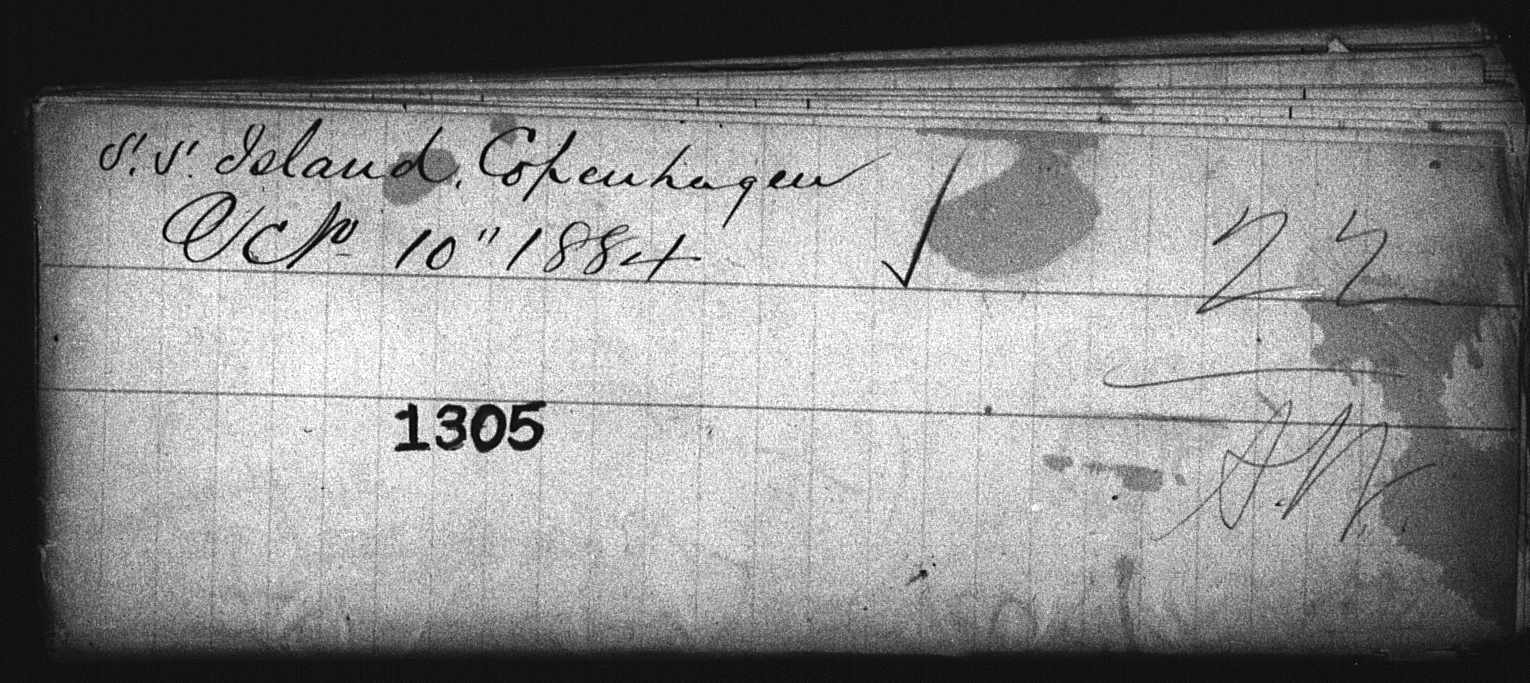 S.S. Island. Copenhagen
Oct No 10" 1884
22
1305